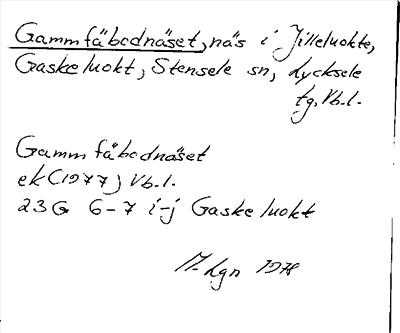 Gammfäbodnäset, näs i Jilleluokte,
Gaskeluokt, Stensele sn, Lycksele
tg, Vb.l.
Gammfäbodnäset
ek (1977) Vb.l.
23G 6-7 i-j Gaskeluokt
M-Lgn 1978